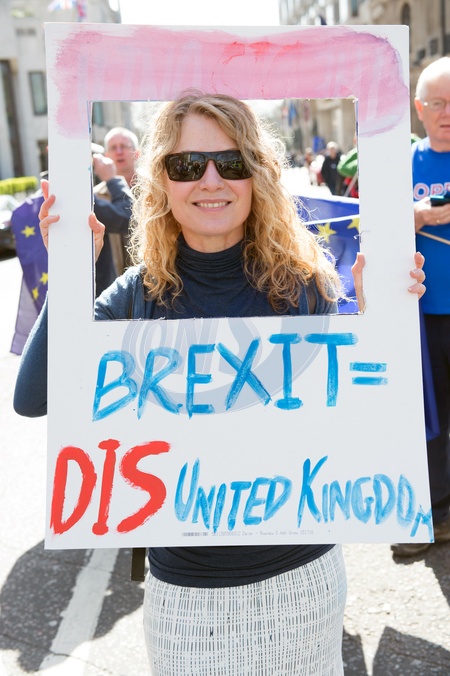 BREXIT =
DIS UNITED KINGDOM